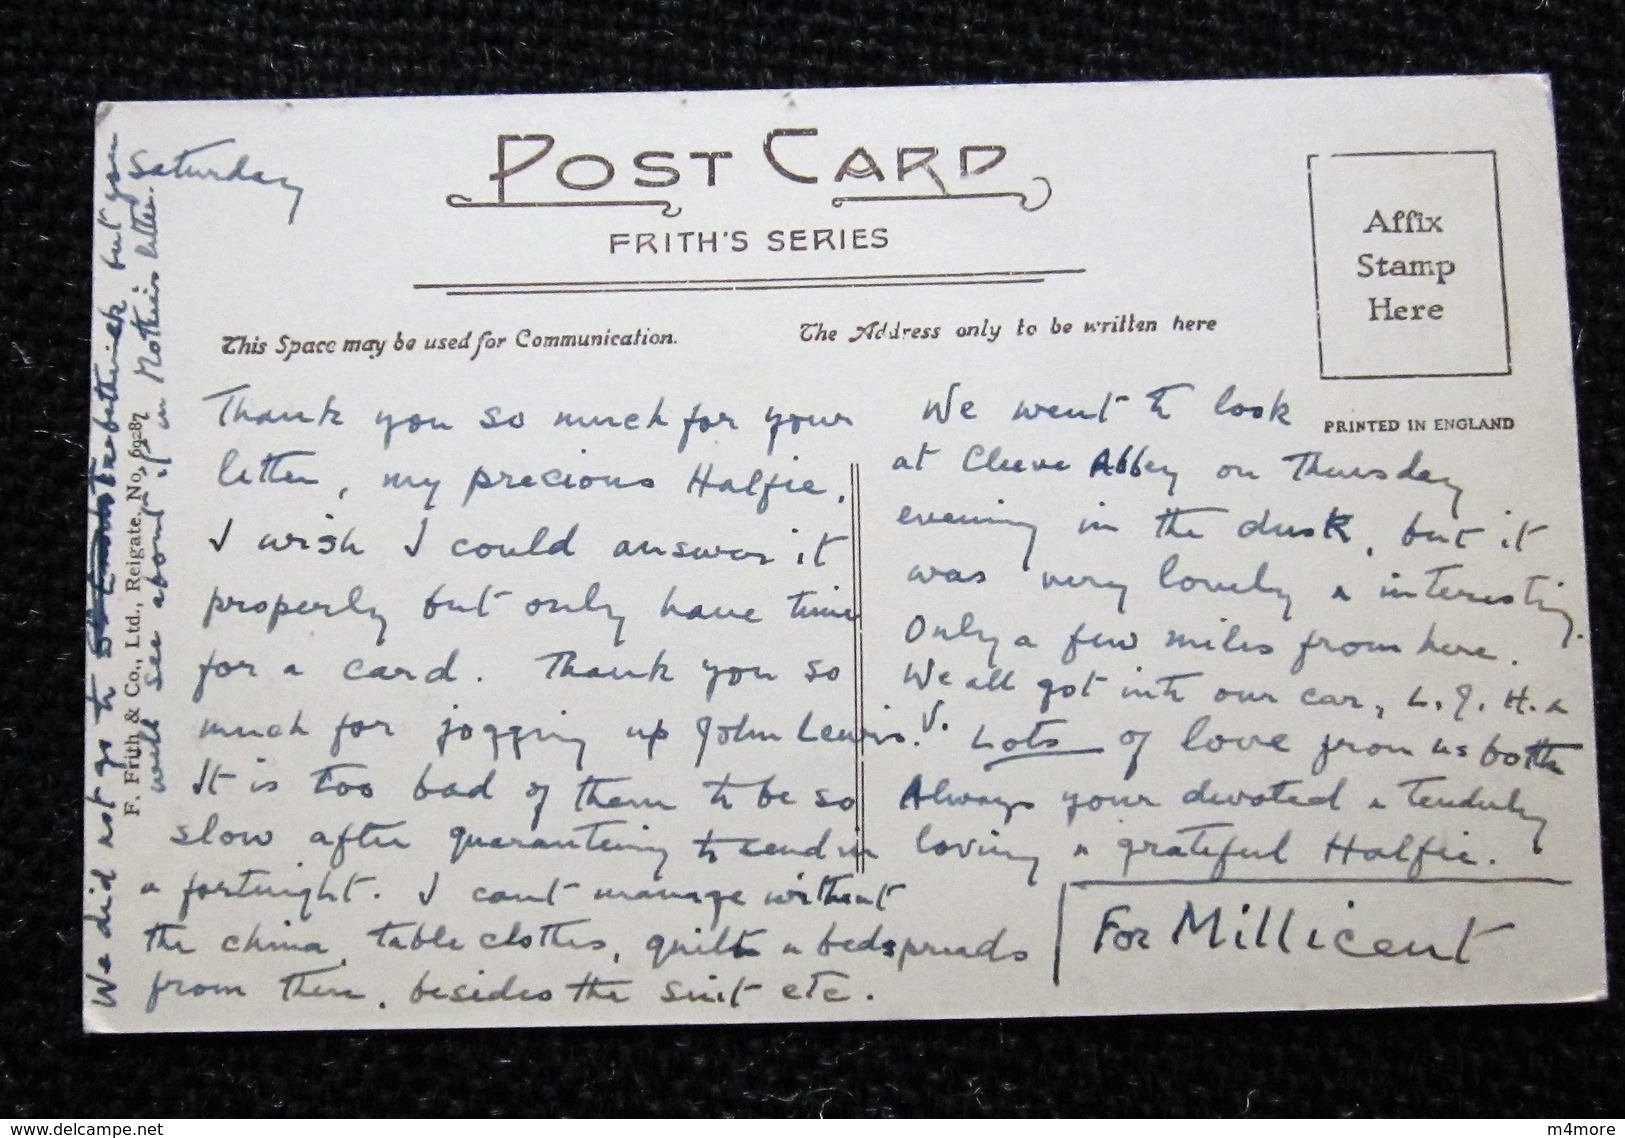 Saturday
POST CARD
FRITH'S SERIES
Affix
Stamp
Here
This Space may be used for Communication.
The Address only to be written here
PRINTED IN ENGLAND
Thank you so much for your
letter, my precious Halfie.
I wish I could answer it
properly but only have time
for a card. Thank you so
much for jogging up John Lewis.
It is too bad of them to be so
slow after guaranteeing to send in
a fortnight. I cant manage without
the china, table clothes, quilts & bedspreads
from them, besides the suit etc.
We went to look
at Cleeve Abbey on Thursday
evening in the dusk, but it
was very lovely & interesting.
Only a few miles from here.
We all got into our car, L. J. H. &
V. Lots of love from us both
Always your devoted & tenderly
loving & grateful Halfie.
For Millicent
We did not go to but you
will see about it in Mother's letter.
F. Frith & Co., Ltd., Reigate. No. 69287
www.delcampe.net
m4more